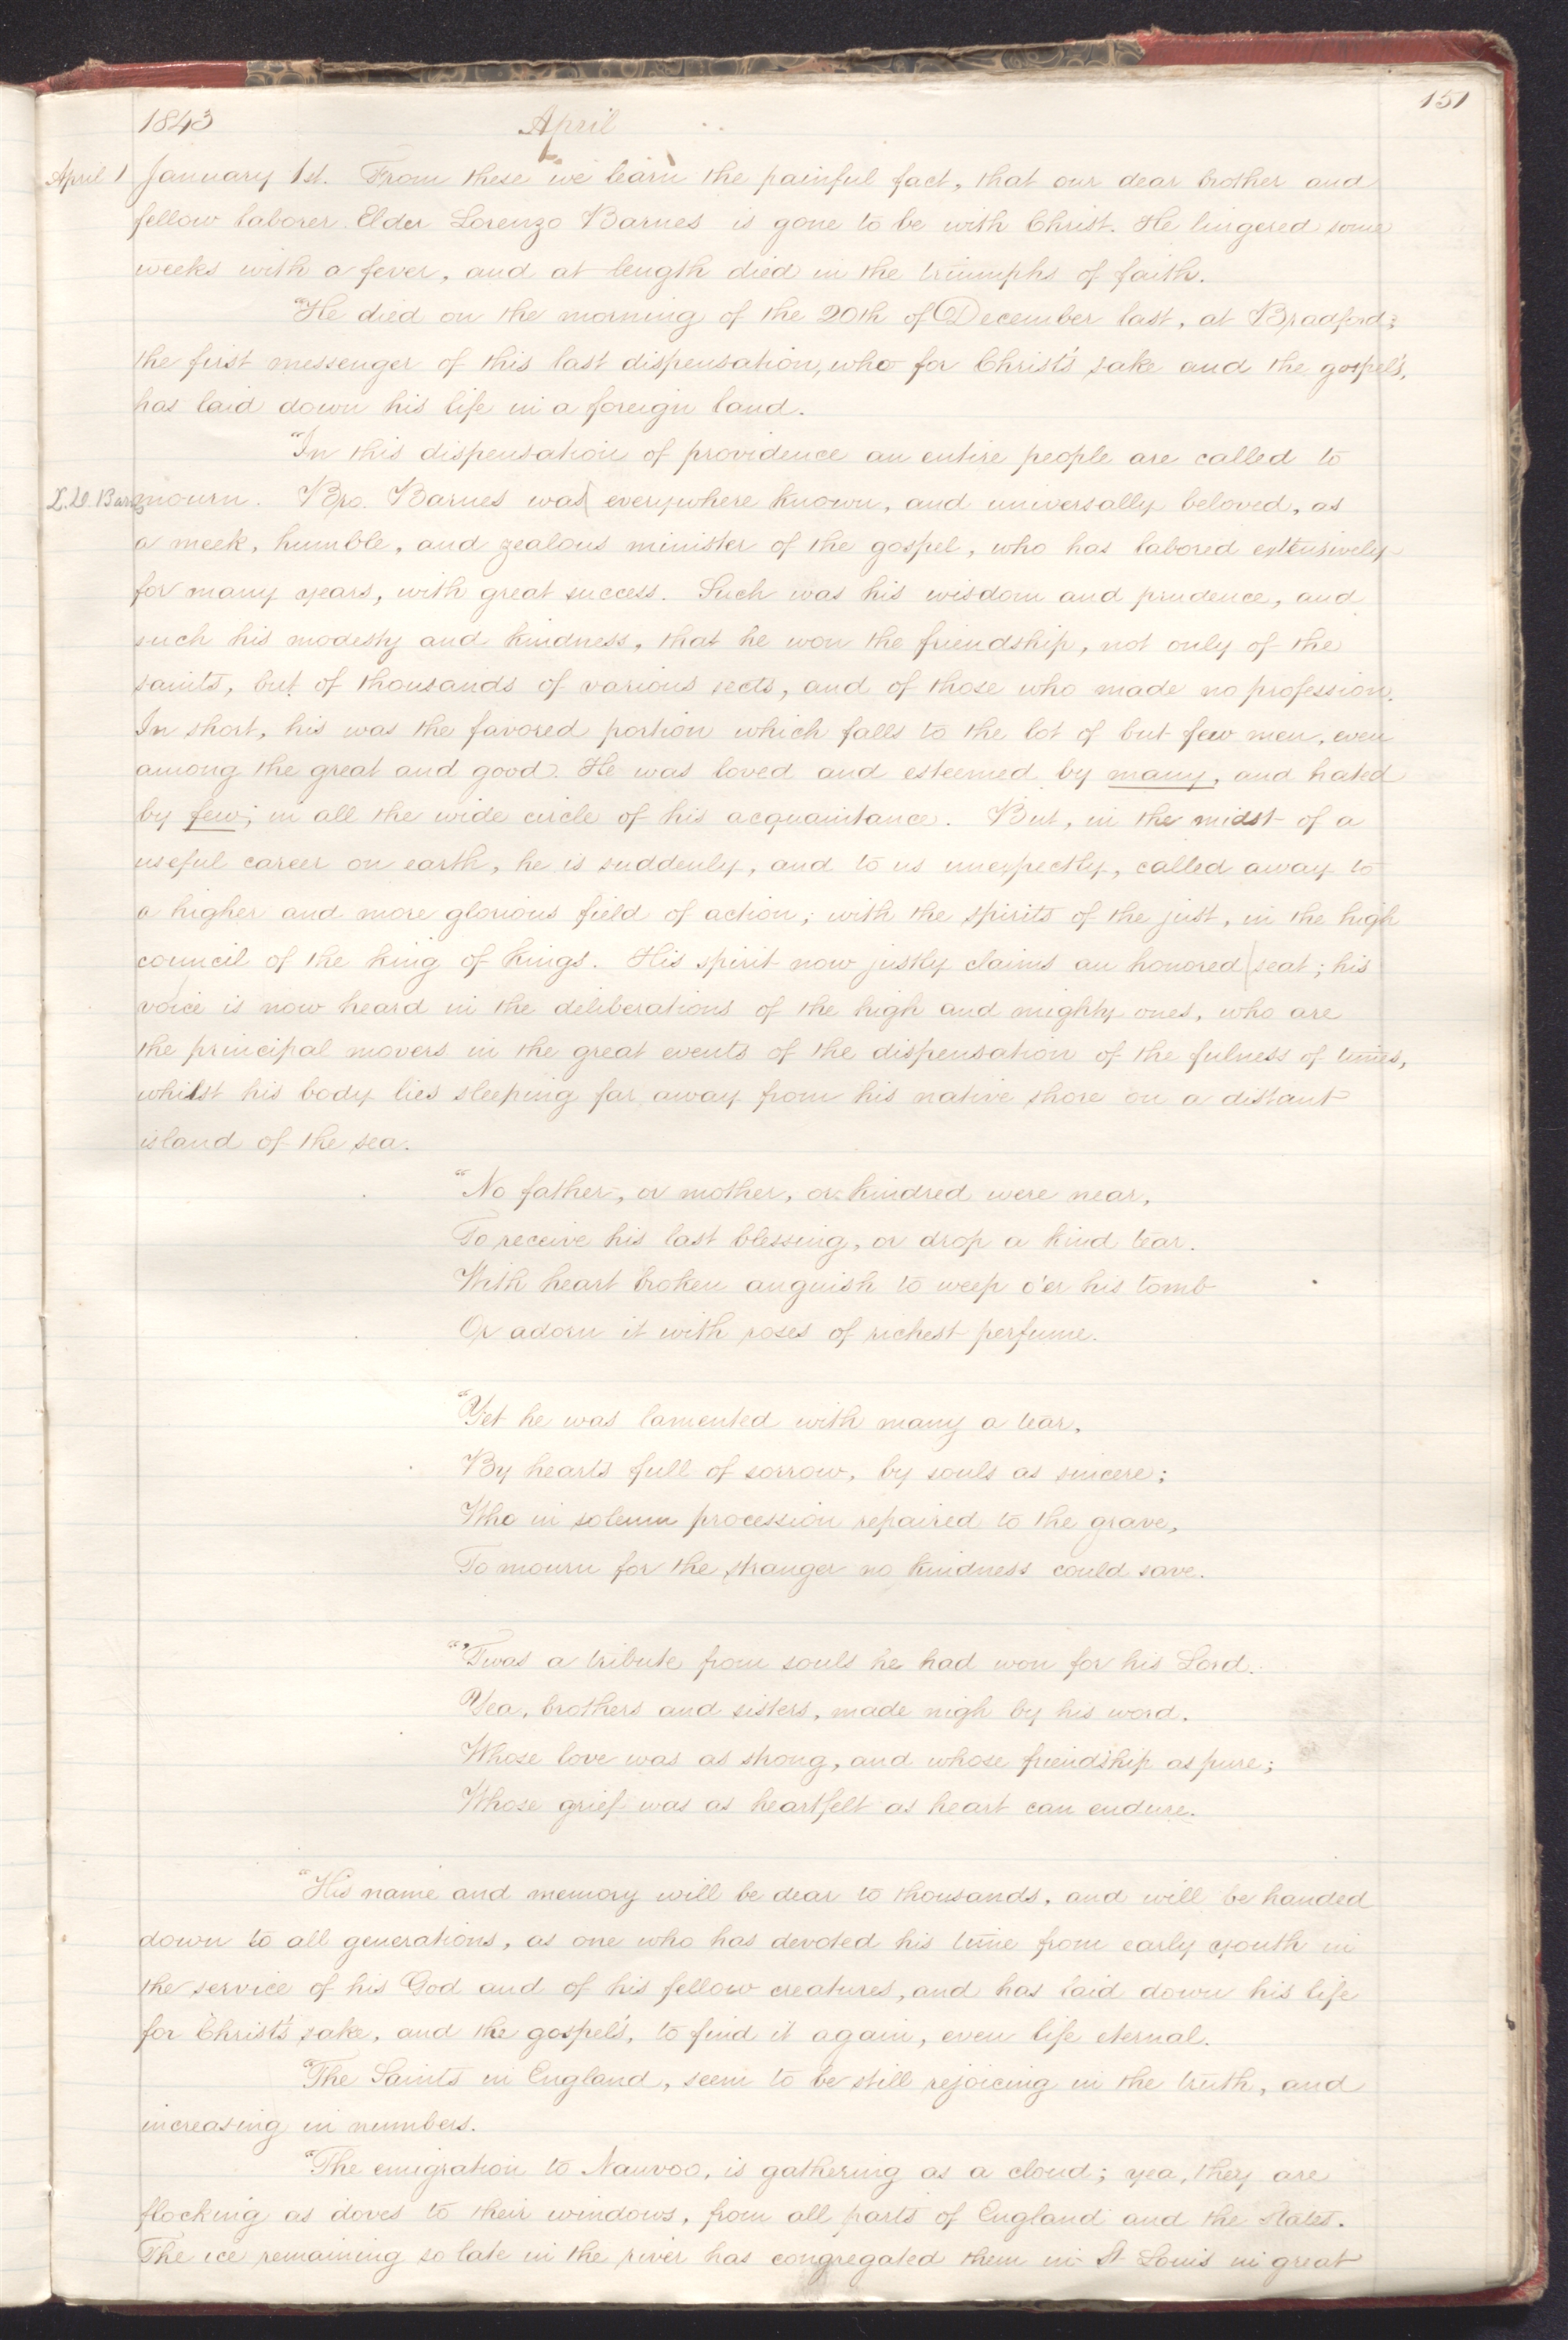 151
1843 April
April 1 January 1st. From these we learn the painful fact, that our dear brother and
fellow laborer Elder Lorenzo Barnes is gone to be with Christ. He lingered some
weeks with a fever, and at length died in the triumphs of faith.
"He died on the morning of the 20th of December last, at Bradford;
the first messenger of this last dispensation, who for Christ's sake and the gospel's,
has laid down his life in a foreign land.
"In this dispensation of providence an entire people are called to
L. D. Barnes mourn. Bro. Barnes was everywhere known, and universally beloved, as
a meek, humble, and zealous minister of the gospel, who has labored extensively
for many years, with great success. Such was his wisdom and prudence, and
such his modesty and kindness, that he won the friendship, not only of the
saints, but of thousands of various sects, and of those who made no profession.
In short, his was the favored portion which falls to the lot of but few men, even
among the great and good. He was loved and esteemed by many, and hated
by few; in all the wide circle of his acquaintance. But, in the midst of a
useful career on earth, he is suddenly, and to us unexpectly, called away to
a higher and more glorious field of action; with the spirits of the just, in the high
council of the king of kings. His spirit now justly claims an honored seat; his
voice is now heard in the deliberations of the high and mighty ones, who are
the principal movers in the great events of the dispensation of the fulness of times,
whilst his body lies sleeping far away from his native shore on a distant
island of the sea.
"No father, or mother, or kindred were near,
To receive his last blessing, or drop a kind tear.
With heart broken anguish to weep o'er his tomb
Or adorn it with roses of richest perfume.
"Yet he was lamented with many a tear,
By hearts full of sorrow, by souls as sincere;
Who in solemn procession repaired to the grave,
To mourn for the stranger no kindness could save.
"'Twas a tribute from souls he had won for his Lord.
Yea, brothers and sisters, made nigh by his word.
Whose love was as strong, and whose friendship as pure;
Whose grief was as heartfelt as heart can endure.
"His name and memory will be dear to thousands, and will be handed
down to all generations, as one who has devoted his time from early youth in
the service of his God and of his fellow creatures, and has laid down his life
for Christ's sake, and the gospel's, to find it again, even life eternal.
"The Saints in England, seem to be still rejoicing in the truth, and
increasing in numbers.
"The emigration to Nauvoo, is gathering as a cloud; yea, they are
flocking as doves to their windows, from all parts of England and the States.
The ice remaining so late in the river has congregated them in St Louis in great